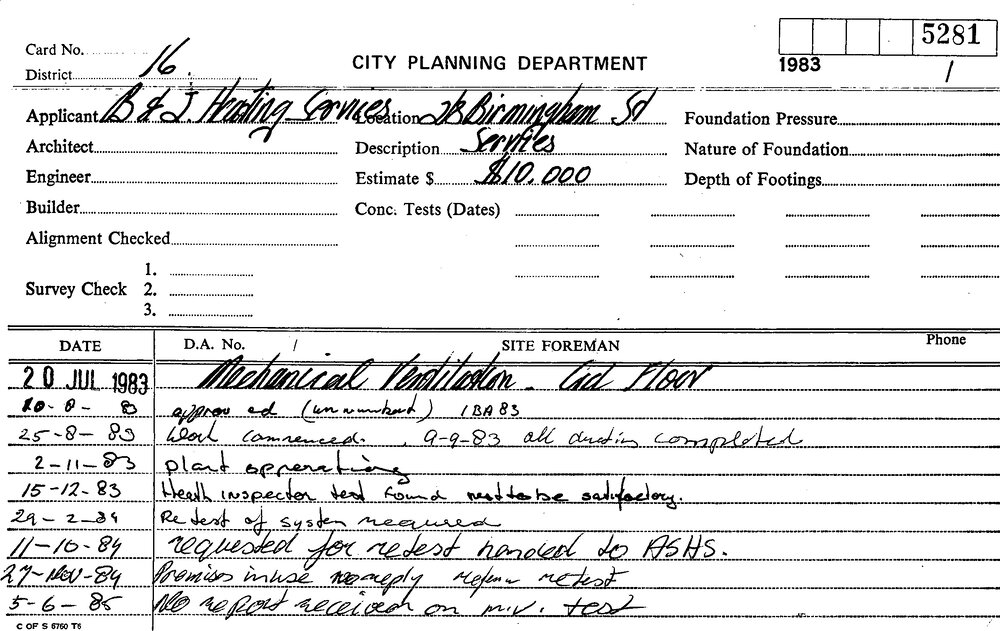 5281
Card No.
District 16
CITY PLANNING DEPARTMENT
1983 /
Applicant B & J. Heating Services Location 28 Birmingham St Foundation Pressure
Architect Description Services Nature of Foundation
Engineer Estimate $ $10.000 Depth of Footings
Builder Conc. Tests (Dates)
Alignment Checked
1.
Survey Check 2.
3.
DATE D.A. No. / SITE FOREMAN Phone
20 JUL 1983 Mechanical Ventilation - Grd Floor
83 approved 1BA83
25-8-83 Work commenced. 9-9-83 all ducting completed
2-11-83 plant opperating
15-12-83 Health inspector test found not to be satisfactory.
29-2-84 Retest of system required
11-10-84 requested for retest handed to ASHS.
27-Nov-84 Premises in use no reply retest
5-6-85 No report received on m.v. test
C OF S 6760 T6